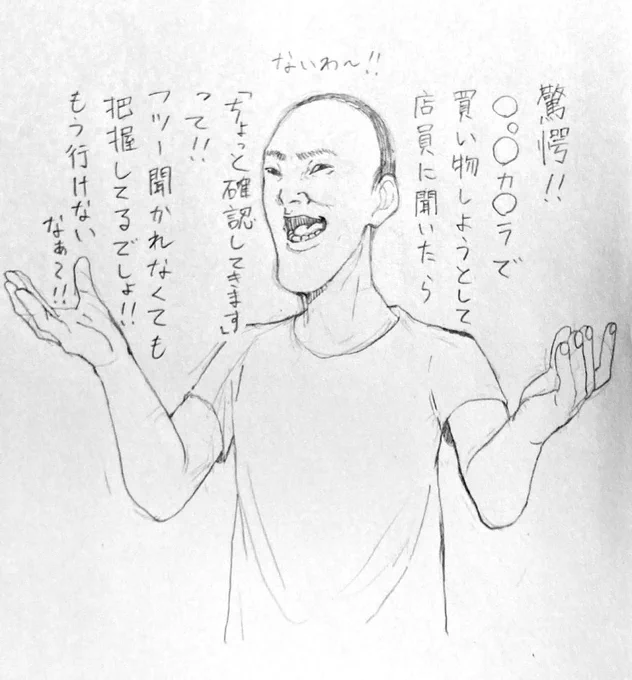 ないわ〜!!
驚愕!!
〇。〇カ〇ラで
買い物しようとして
店員に聞いたら
「ちょっと確認してきます」
って!!
フツー聞かれなくても
把握してるでしょ!!
もう行けない
なぁ〜!!